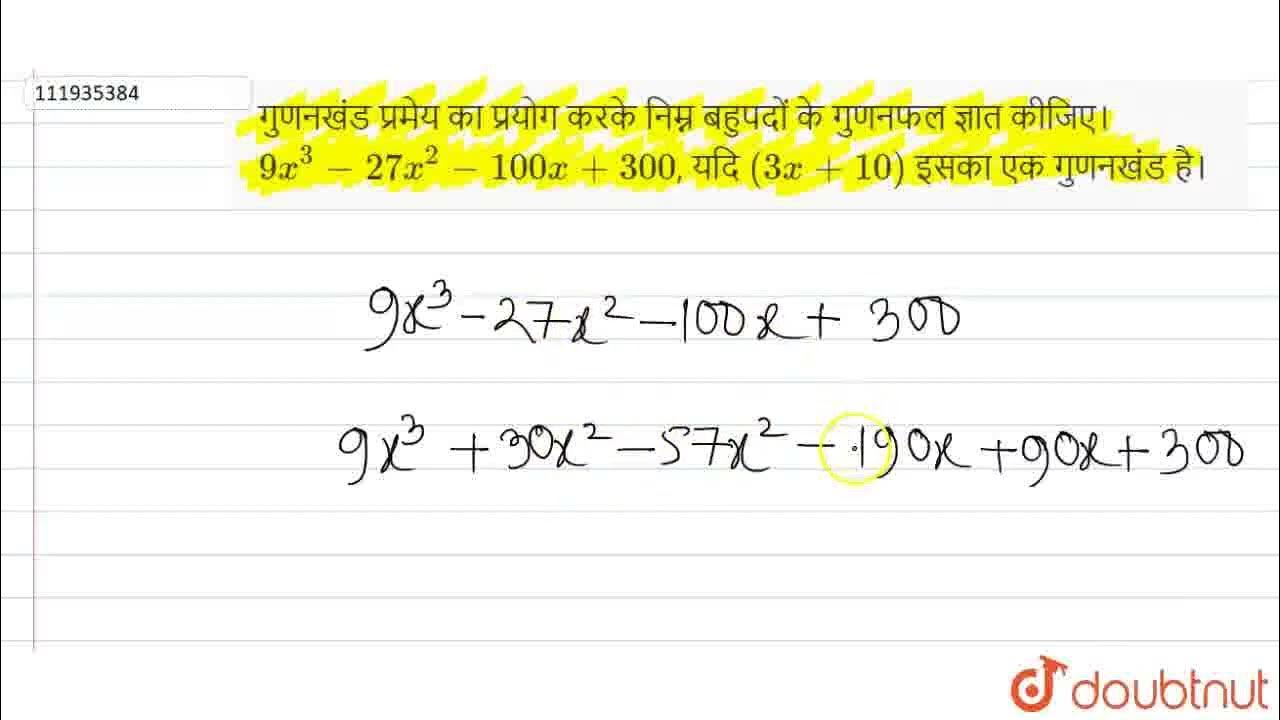 111935384
गुणनखंड प्रमेय का प्रयोग करके निम्न बहुपदों के गुणनफल ज्ञात कीजिए।
9x³ − 27x² − 100x + 300, यदि (3x + 10) इसका एक गुणनखंड है।
9x³ - 27x² - 100x + 300
9x³ + 30x² - 57x² - 190x + 90x + 300
doubtnut